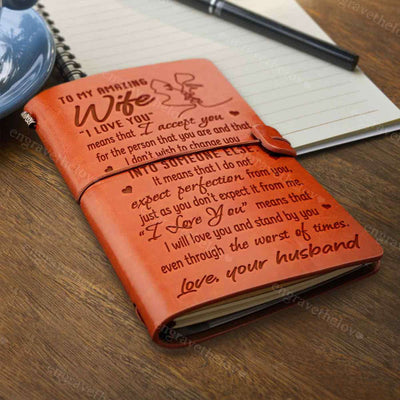 TO MY AMAZING
Wife
"I LOVE YOU"
means that I accept you
for the person that you are and that
I don't wish to change you
INTO SOMEONE ELSE
It means that I do not
expect perfection from you,
just as you don't expect it from me.
"I Love You" means that
I will love you and stand by you
even through the worst of times.
Love, your husband
engravethelove